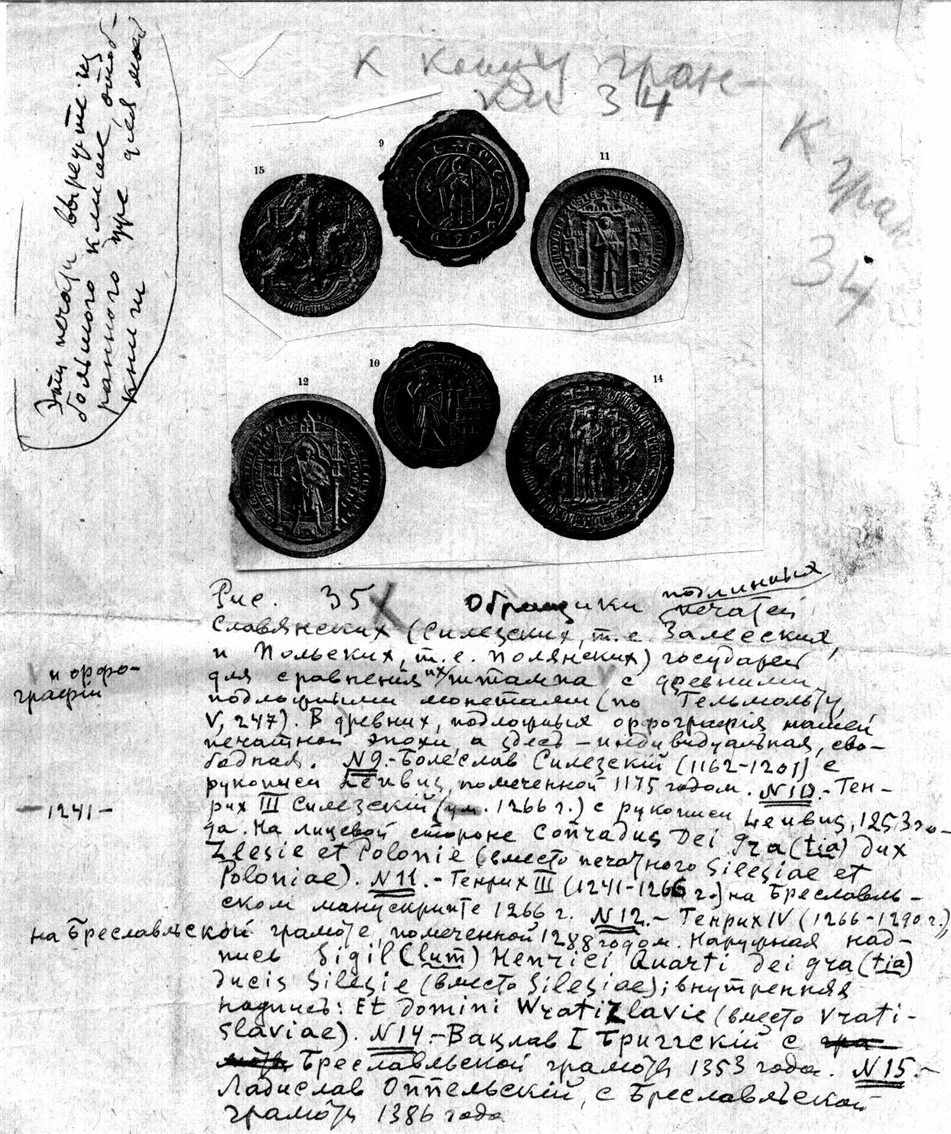 К концу гран-
ки 34
К гран
34
Эти печати вырежте из
большого клише отоб-
ранного уже для моей
книги
9
15
11
10
12
14
Рис. 35 Образчики подлинных печатей
Славянских (Силезских, т.е. Залесских,
и Польских, т.е. Полянских) государей
для сравнения их штампа V с древними
V и орфо-
графіи
подложными монетами (по Гельмольту,
V, 247). В древних, подложных орфографія нашей
печатной эпохи, а здесь – индивидуальная, сво-
бодная. N9.- Болеслав Силезскій (1162-1201) с
рукописи Лейбус, помеченной 1175 годом. N10.- Ген-
— 1241 —
рих III Силезскій (ум. 1266 г.) с рукописи Лейбус, 1253 го-
да. На лицевой стороне Conradus Dei gra(tia) dux
Zlesie et Polonie (вместо печатного Silesiae et
Poloniae). N11.- Генрих III (1241-1266 г.) на Бреславль-
ском манускрипте 1266 г. N12.- Генрих IV (1266-1290 г.),
на Бреславльской грамоте, помеченной 1288 годом. Наружная над-
пись Sigil(lum) Henrici Quarti dei gra(tia)
ducis Silesie (вместо Silesiae); внутренняя
надпись: Et domini Wratizlavie (вместо Vrati-
slaviae). N14.- Вацлав I Бриггскій с
Бреславльской грамоты 1353 года. N15.-
Ладислав Оппельскій, с Бреславльской
грамоты 1386 года